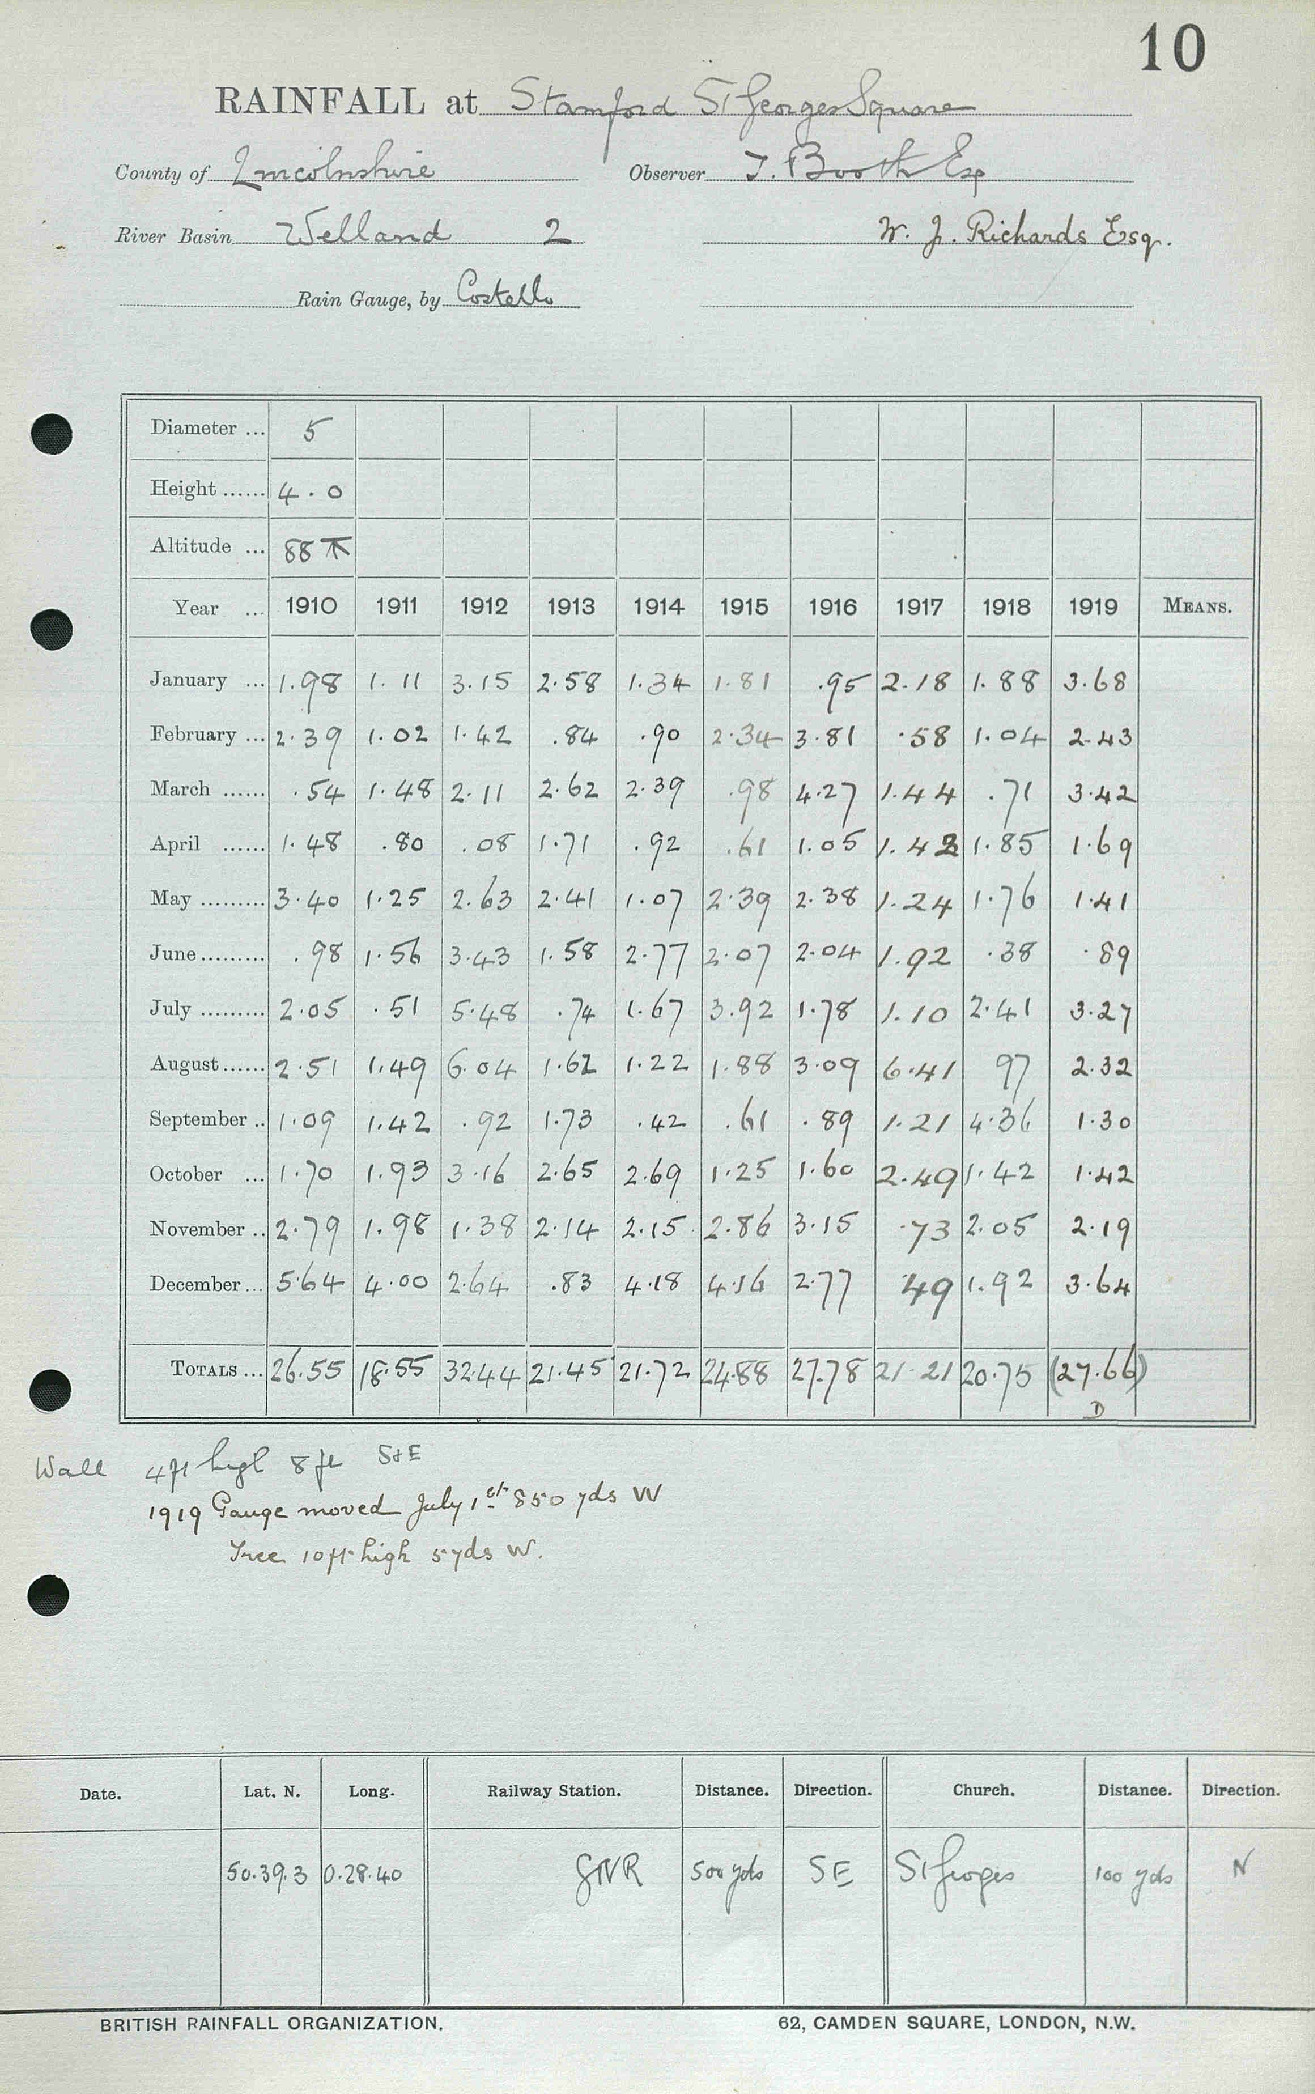 10
RAINFALL at Stamford St Georges Square
County of Lincolnshire Observer T. Booth Esq
River Basin Welland 2 W. J. Richards Esq.
Rain Gauge, by Costello
Diameter ... 5
Height ...... 4.0
Altitude ... 88
Year ... 1910 1911 1912 1913 1914 1915 1916 1917 1918 1919 MEANS.
January ... 1.98 1.11 3.15 2.58 1.34 1.81 .95 2.18 1.88 3.68
February ... 2.39 1.02 1.42 .84 .90 2.34 3.81 .58 1.04 2.43
March ...... .54 1.48 2.11 2.62 2.39 .98 4.27 1.44 .71 3.42
April ...... 1.48 .80 .08 1.71 .92 .61 1.05 1.42 1.85 1.69
May ......... 3.40 1.25 2.63 2.41 1.07 2.39 2.38 1.24 1.76 1.41
June ......... .98 1.56 3.43 1.58 2.77 2.07 2.04 1.92 .38 .89
July ......... 2.05 .51 5.48 .74 1.67 3.92 1.78 1.10 2.41 3.27
August ...... 2.51 1.49 6.04 1.62 1.22 1.88 3.09 6.41 97 2.32
September .. 1.09 1.42 .92 1.73 .42 .61 .89 1.21 4.36 1.30
October ... 1.70 1.93 3.16 2.65 2.69 1.25 1.60 2.49 1.42 1.42
November .. 2.79 1.98 1.38 2.14 2.15 2.86 3.15 .73 2.05 2.19
December ... 5.64 4.00 2.64 .83 4.18 4.16 2.77 .49 1.92 3.64
TOTALS ... 26.55 18.55 32.44 21.45 21.72 24.88 27.78 21.21 20.75 (27.66)
D
Wall 4ft high 8 ft S&E
1919 Gauge moved July 1st 850 yds W
Tree 10 ft high 5 yds W.
Date. Lat. N. Long. Railway Station. Distance. Direction. Church. Distance. Direction.
50.39.3 0.28.40 GNR 500 yds SE St Georges 100 yds N
BRITISH RAINFALL ORGANIZATION. 62, CAMDEN SQUARE, LONDON, N.W.